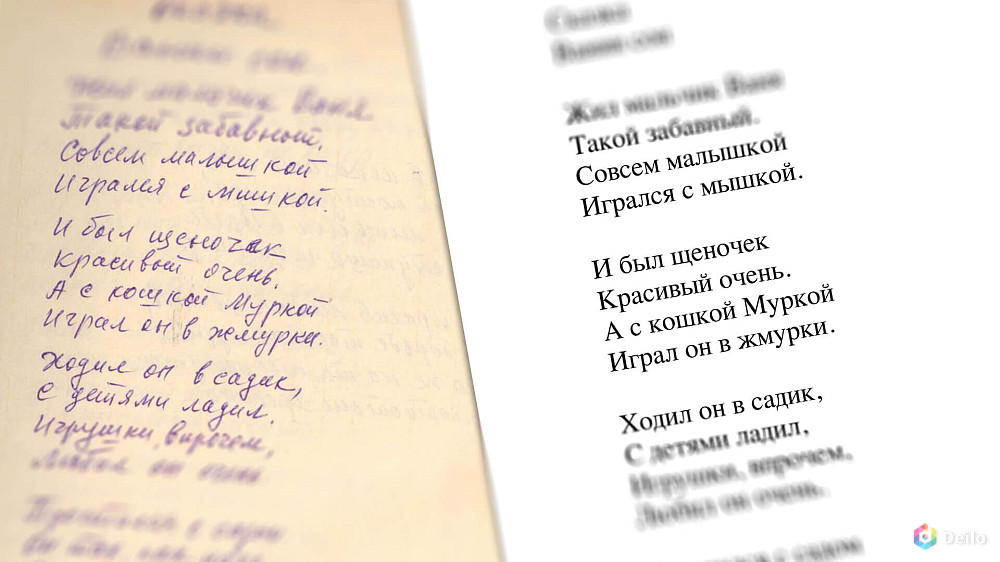 Сказка.
Ванин сон.
Жил мальчик Ваня
Такой забавный,
Совсем малышкой
Игрался с мишкой.
И был щеночек
Красивый очень.
А с кошкой Муркой
Играл он в жмурки.
Ходил он в садик,
С детями ладил.
Игрушки, впрочем,
Любил он очень.
Сказка
Ванин сон
Жил мальчик Ваня
Такой забавный.
Совсем малышкой
Игрался с мышкой.
И был щеночек
Красивый очень.
А с кошкой Муркой
Играл он в жмурки.
Ходил он в садик,
С детями ладил,
Игрушки, впрочем,
Любил он очень.
с садом
Deilo